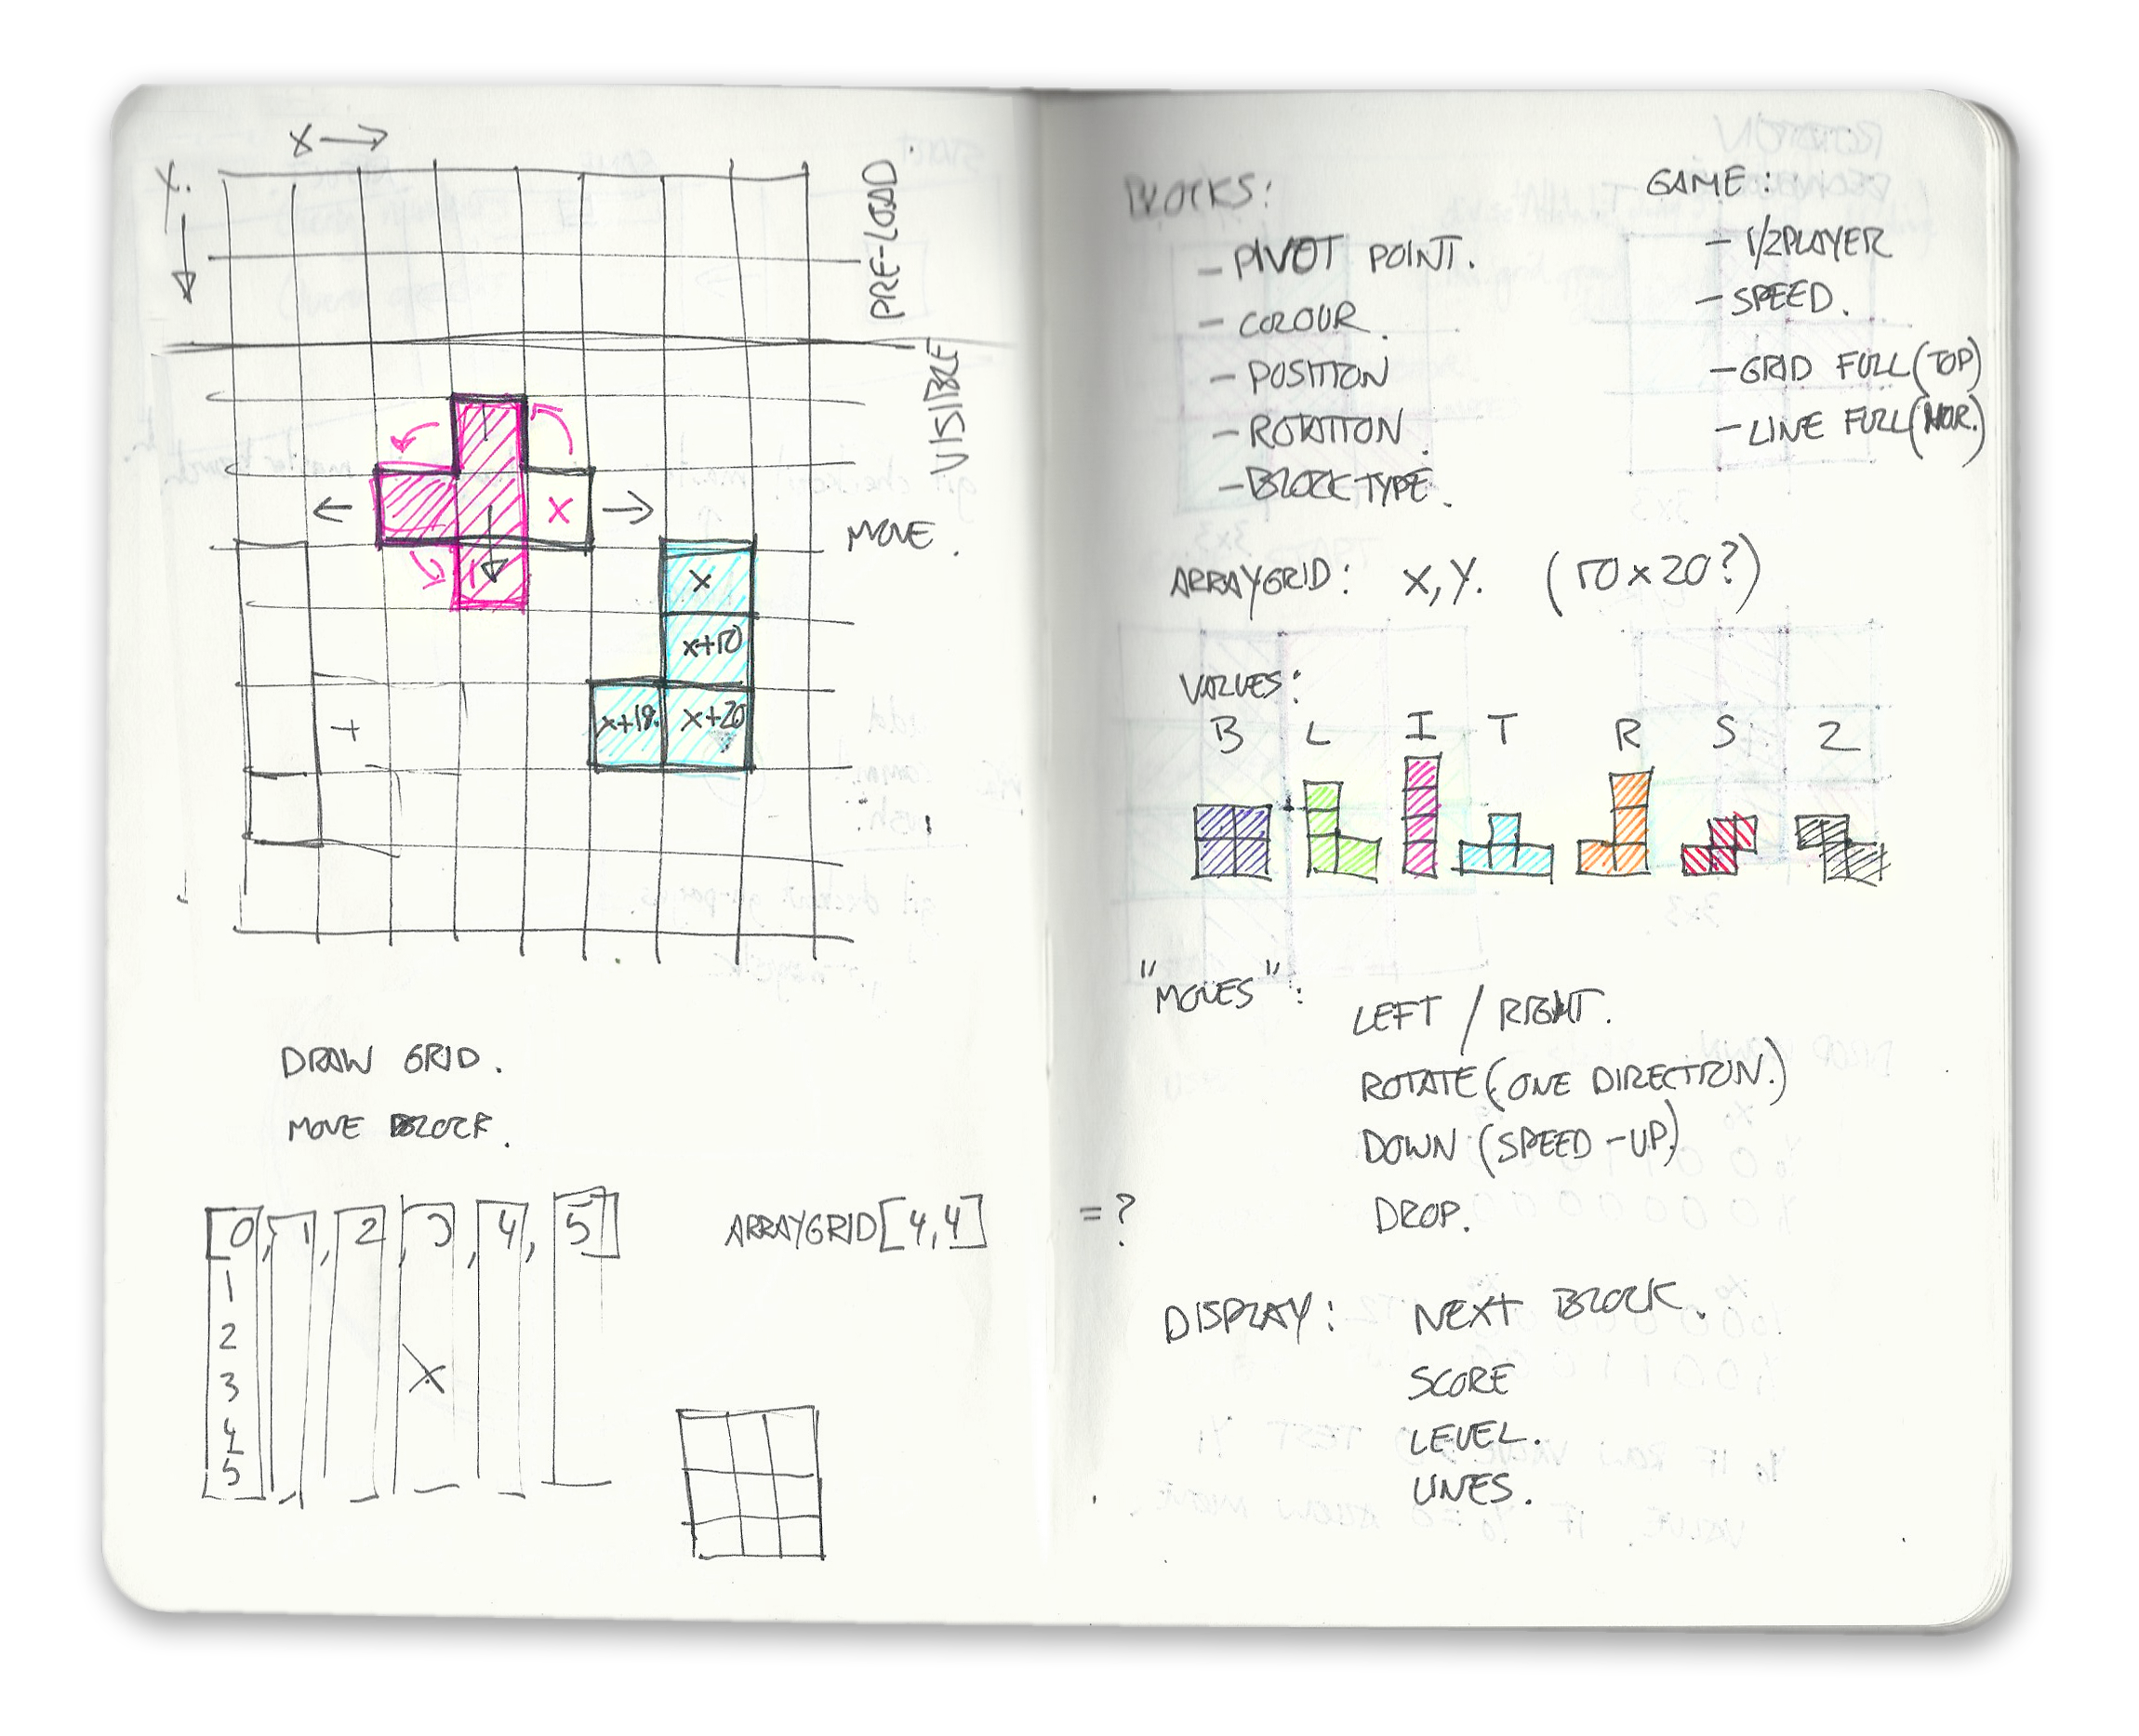 X
Y.
PRE-LOAD
VISIBLE
X
MOVE.
X
X+10
X+19. X+20
+
DRAW GRID.
MOVE BLOCK.
[0, 1, 2, 3, 4, 5]
1
2
3
4
5
X
ARRAYGRID[4,4] = ?
BLOCKS:
- PIVOT POINT.
- COLOUR.
- POSITION
- ROTATION.
- BLOCK TYPE.
GAME:
- 1/2PLAYER
- SPEED.
- GRID FULL (TOP)
- LINE FULL (HOR.)
ARRAYGRID: X,Y. (10x20?)
VALUES:
B L I T R S Z
"MOVES":
LEFT / RIGHT.
ROTATE (ONE DIRECTION.)
DOWN (SPEED-UP)
DROP.
DISPLAY: NEXT BLOCK.
SCORE
LEVEL.
LINES.